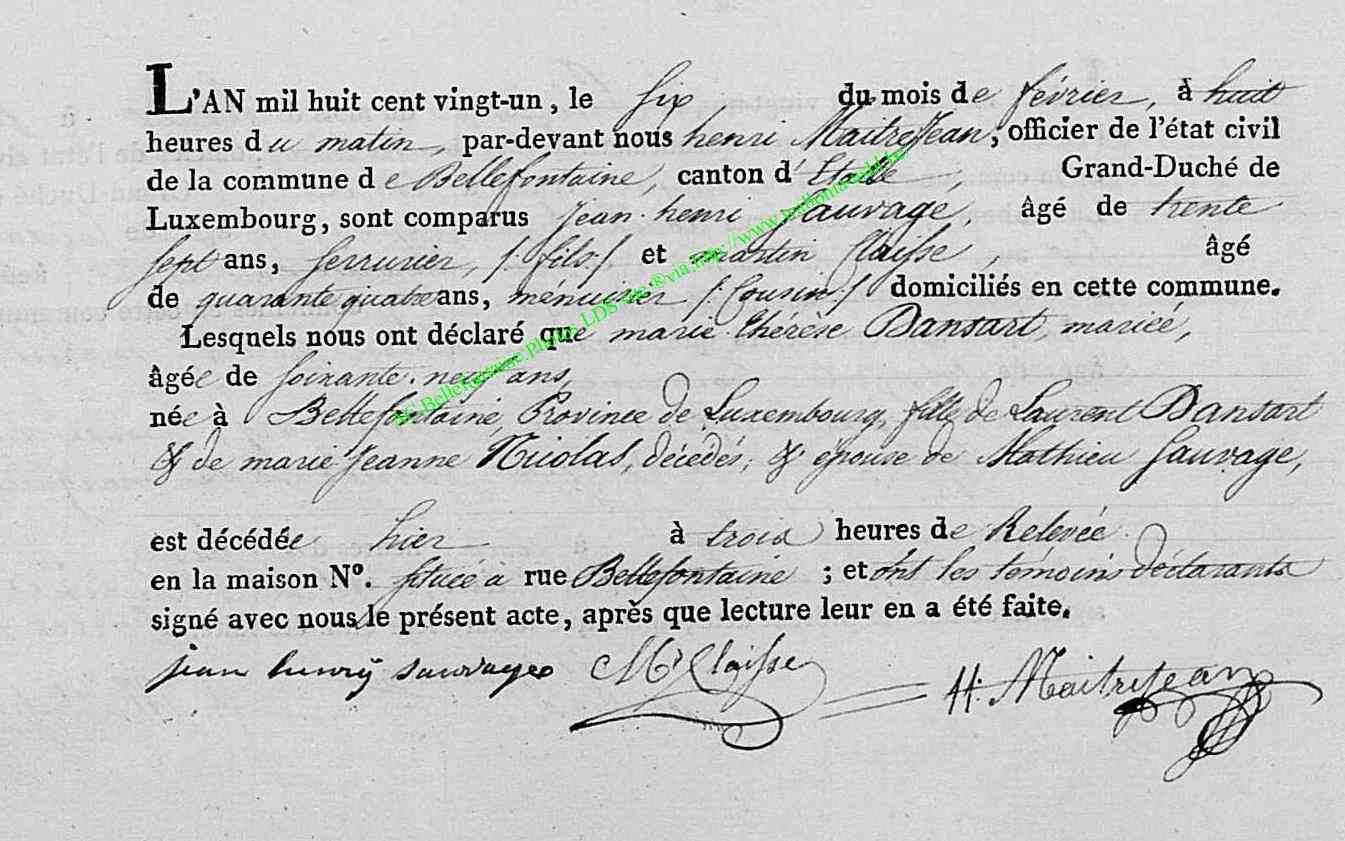 L'AN mil huit cent vingt-un, le six du mois de février, à huit
heures du matin, par-devant nous henri MaitreJean, officier de l'état civil
de la commune de Bellefontaine, canton d'Etalle, Grand-Duché de
Luxembourg, sont comparus jean henri Sauvage, âgé de trente
sept ans, serrurier, /: fils :/ et martin Claisse, âgé
de quarante quatre ans, ménuisier /: Cousin :/ domiciliés en cette commune.
Lesquels nous ont déclaré que marie thérèse Dansart, mariée,
âgée de soixante-neuf ans,
née à Bellefontaine, Province de Luxembourg, fille de Laurent Dansart
& de marie Jeanne Nicolas, décédés, & épouse de Mathieu Sauvage,
est décédée hier à trois heures de Relevée.
en la maison N°. située à rue Bellefontaine ; et ont les témoins déclarants
signé avec nous le présent acte, après que lecture leur en a été faite.
jean henry sauvages M Claisse H: MaitreJean